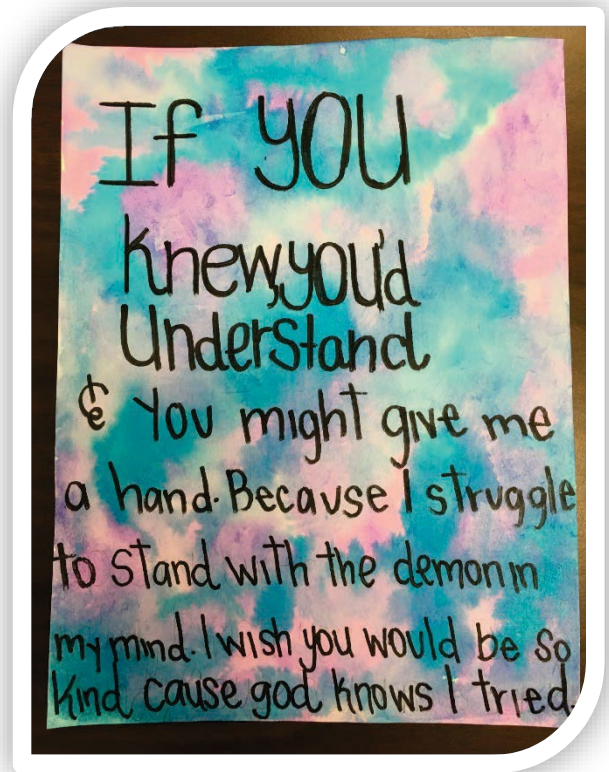 If you
knew,you'd
Understand
& You might give me
a hand. Because I struggle
to stand with the demon in
my mind. I wish you would be so
kind cause god knows I tried.